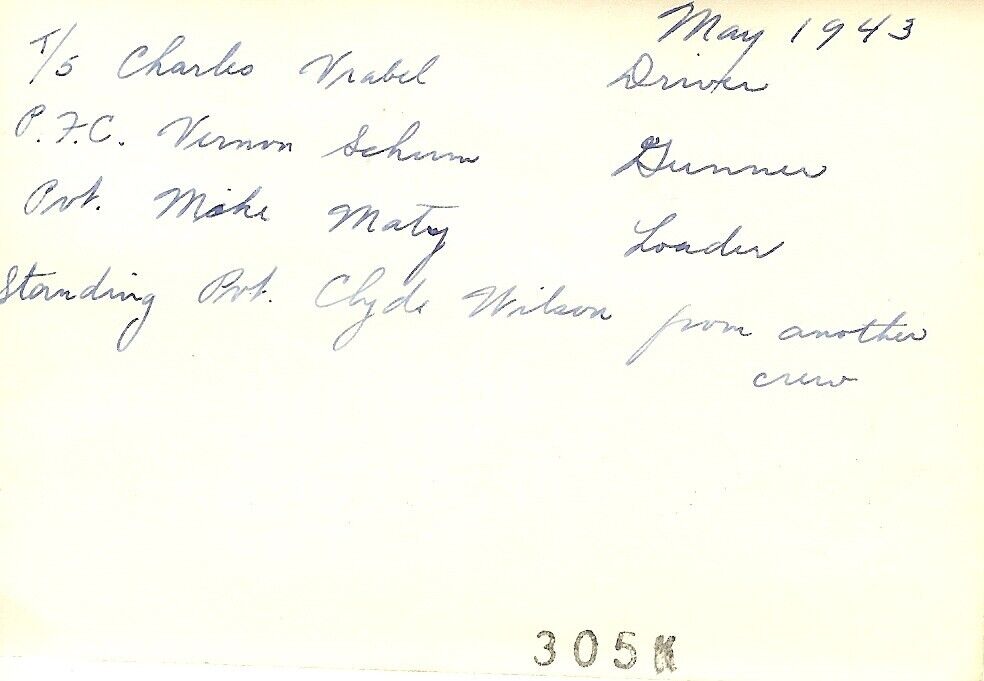 May 1943
T/5 Charles Vrabel Driver
P.F.C. Vernon Schum Gunner
Pvt. Mike Maty Loader
Standing Pvt. Clyde Wilson from another
crew
305K